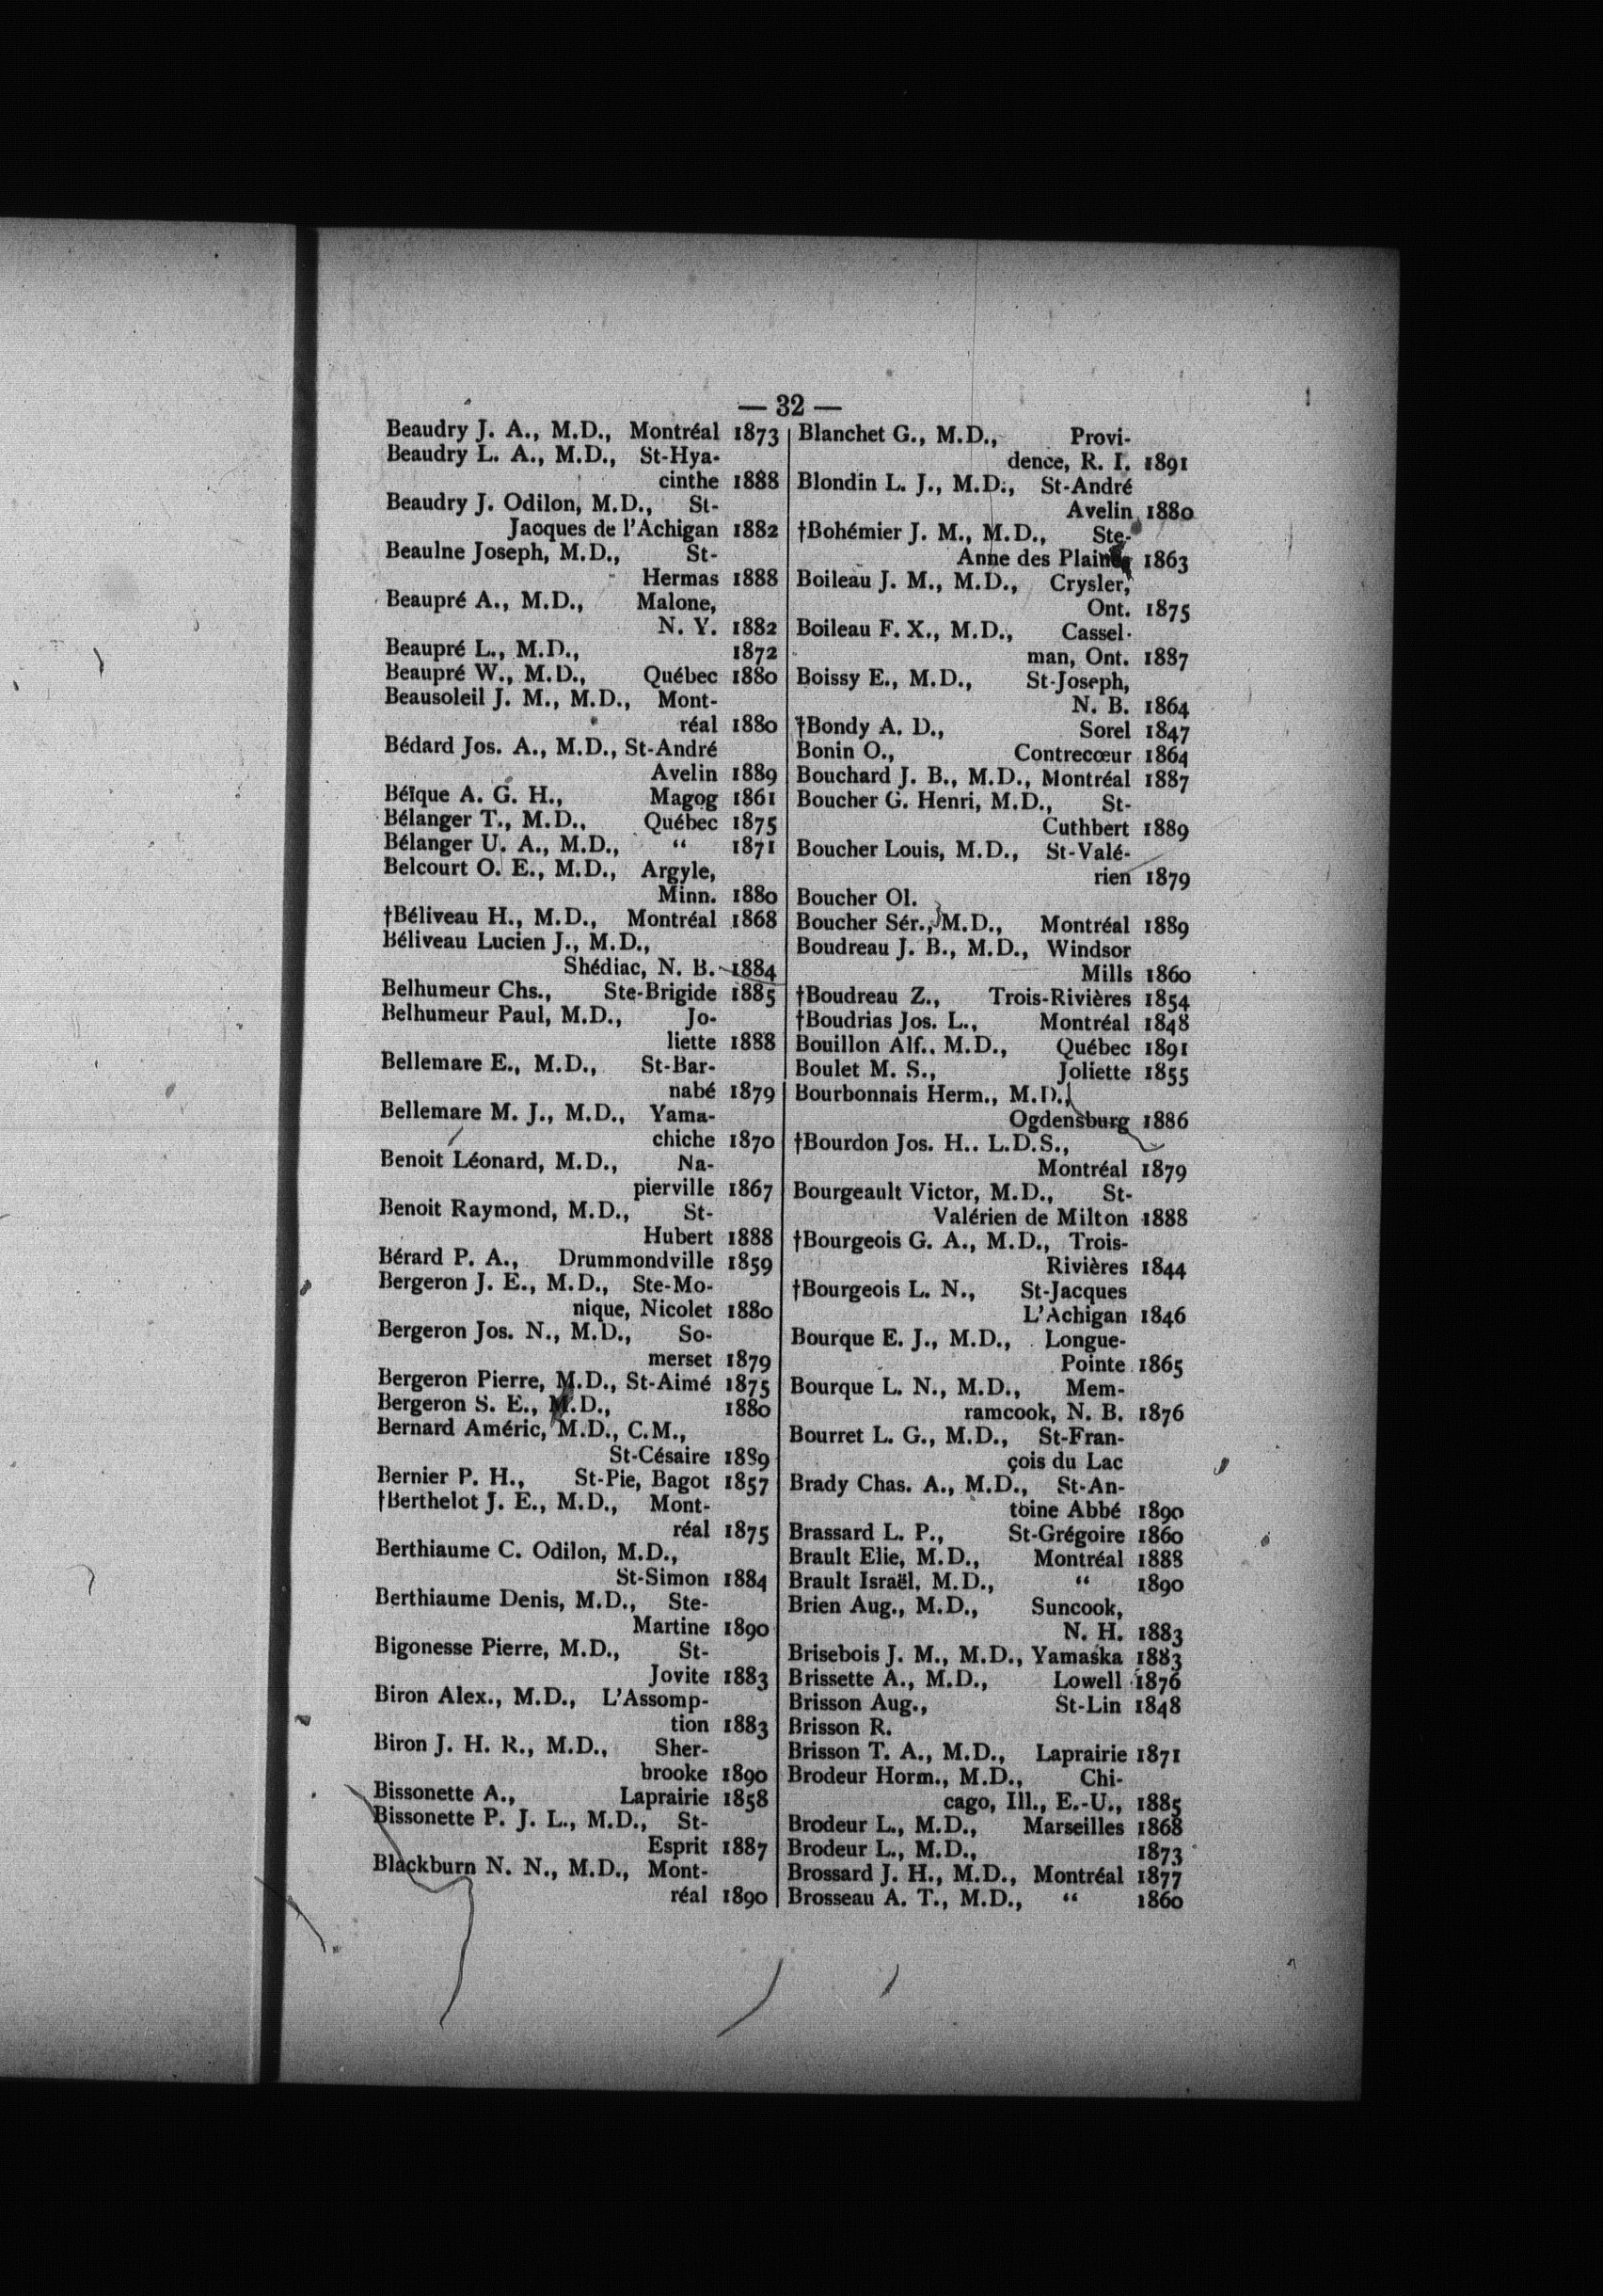 — 32 —
Beaudry J. A., M.D., Montréal 1873
Beaudry L. A., M.D., St-Hya-
cinthe 1888
Beaudry J. Odilon, M.D., St-
Jacques de l'Achigan 1882
Beaulne Joseph, M.D., St-
Hermas 1888
Beaupré A., M.D., Malone,
N. Y. 1882
Beaupré L., M.D., 1872
Beaupré W., M.D., Québec 1880
Beausoleil J. M., M.D., Mont-
réal 1880
Bédard Jos. A., M.D., St-André
Avelin 1889
Béïque A. G. H., Magog 1861
Bélanger T., M.D., Québec 1875
Bélanger U. A., M.D., “ 1871
Belcourt O. E., M.D., Argyle,
Minn. 1880
†Béliveau H., M.D., Montréal 1868
Béliveau Lucien J., M.D.,
Shédiac, N. B. 1884
Belhumeur Chs., Ste-Brigide 1885
Belhumeur Paul, M.D., Jo-
liette 1888
Bellemare E., M.D., St-Bar-
nabé 1879
Bellemare M. J., M.D., Yama-
chiche 1870
Benoit Léonard, M.D., Na-
pierville 1867
Benoit Raymond, M.D., St-
Hubert 1888
Bérard P. A., Drummondville 1859
Bergeron J. E., M.D., Ste-Mo-
nique, Nicolet 1880
Bergeron Jos. N., M.D., So-
merset 1879
Bergeron Pierre, M.D., St-Aimé 1875
Bergeron S. E., M.D., 1880
Bernard Améric, M.D., C.M.,
St-Césaire 1889
Bernier P. H., St-Pie, Bagot 1857
†Berthelot J. E., M.D., Mont-
réal 1875
Berthiaume C. Odilon, M.D.,
St-Simon 1884
Berthiaume Denis, M.D., Ste-
Martine 1890
Bigonesse Pierre, M.D., St-
Jovite 1883
Biron Alex., M.D., L'Assomp-
tion 1883
Biron J. H. R., M.D., Sher-
brooke 1890
Bissonette A., Laprairie 1858
Bissonette P. J. L., M.D., St-
Esprit 1887
Blackburn N. N., M.D., Mont-
réal 1890
Blanchet G., M.D., Provi-
dence, R. I. 1891
Blondin L. J., M.D., St-André
Avelin 1880
†Bohémier J. M., M.D., Ste-
Anne des Plaines 1863
Boileau J. M., M.D., Crysler,
Ont. 1875
Boileau F. X., M.D., Cassel-
man, Ont. 1887
Boissy E., M.D., St-Joseph,
N. B. 1864
†Bondy A. D., Sorel 1847
Bonin O., Contrecœur 1864
Bouchard J. B., M.D., Montréal 1887
Boucher G. Henri, M.D., St-
Cuthbert 1889
Boucher Louis, M.D., St-Valé-
rien 1879
Boucher Ol.
Boucher Sér., M.D., Montréal 1889
Boudreau J. B., M.D., Windsor
Mills 1860
†Boudreau Z., Trois-Rivières 1854
†Boudrias Jos. L., Montréal 1848
Bouillon Alf.. M.D., Québec 1891
Boulet M. S., Joliette 1855
Bourbonnais Herm., M.D.,
Ogdensburg 1886
†Bourdon Jos. H.. L.D.S.,
Montréal 1879
Bourgeault Victor, M.D., St-
Valérien de Milton 1888
†Bourgeois G. A., M.D., Trois-
Rivières 1844
†Bourgeois L. N., St-Jacques
L'Achigan 1846
Bourque E. J., M.D., Longue-
Pointe 1865
Bourque L. N., M.D., Mem-
ramcook, N. B. 1876
Bourret L. G., M.D., St-Fran-
çois du Lac
Brady Chas. A., M.D., St-An-
toine Abbé 1890
Brassard L. P., St-Grégoire 1860
Brault Elie, M.D., Montréal 1888
Brault Israël, M.D., “ 1890
Brien Aug., M.D., Suncook,
N. H. 1883
Brisebois J. M., M.D., Yamaska 1883
Brissette A., M.D., Lowell 1876
Brisson Aug., St-Lin 1848
Brisson R.
Brisson T. A., M.D., Laprairie 1871
Brodeur Horm., M.D., Chi-
cago, Ill., E.-U., 1885
Brodeur L., M.D., Marseilles 1868
Brodeur L., M.D., 1873
Brossard J. H., M.D., Montréal 1877
Brosseau A. T., M.D., “ 1860